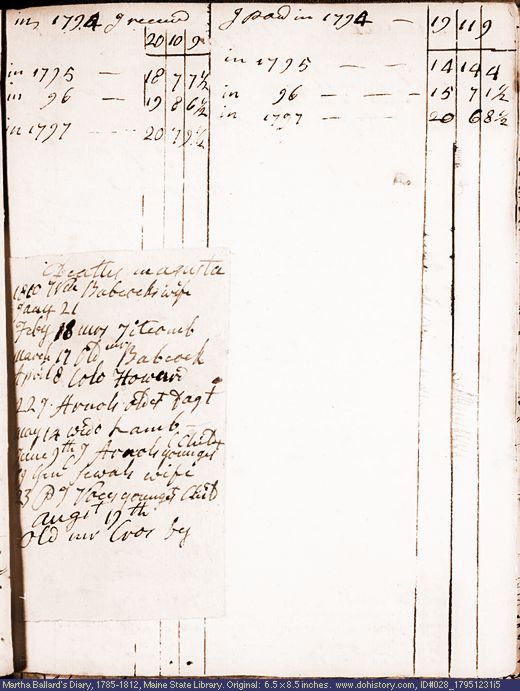 in 1794 I received 20 10 9
in 1795 — 18 7 7½
in 96 — 19 8 6½
in 1797 — — 20 7 9½
I paid in 1794 — 19 11 9
in 1795 — 14 14 4
in 96 — — — 15 7 1½
in 1797 — — 20 6 8½
Deaths in agusta
1810 Babcocks wife
Jany 21
Feby 18 mrs Titcomb
march 17 old mr Babcock
April 8 Colo Howard
22 J Arnols oldest Dagt
may 14 wido Lamb
June 9th J Arnols youngest Child
Genl Sewals wife
23 youngest Child
augst 19th
old mr Cros by
Martha Ballard's Diary, 1785-1812, Maine State Library. Original: 6.5 x 8.5 inches. www.dohistory.com, ID#028_17951231i5